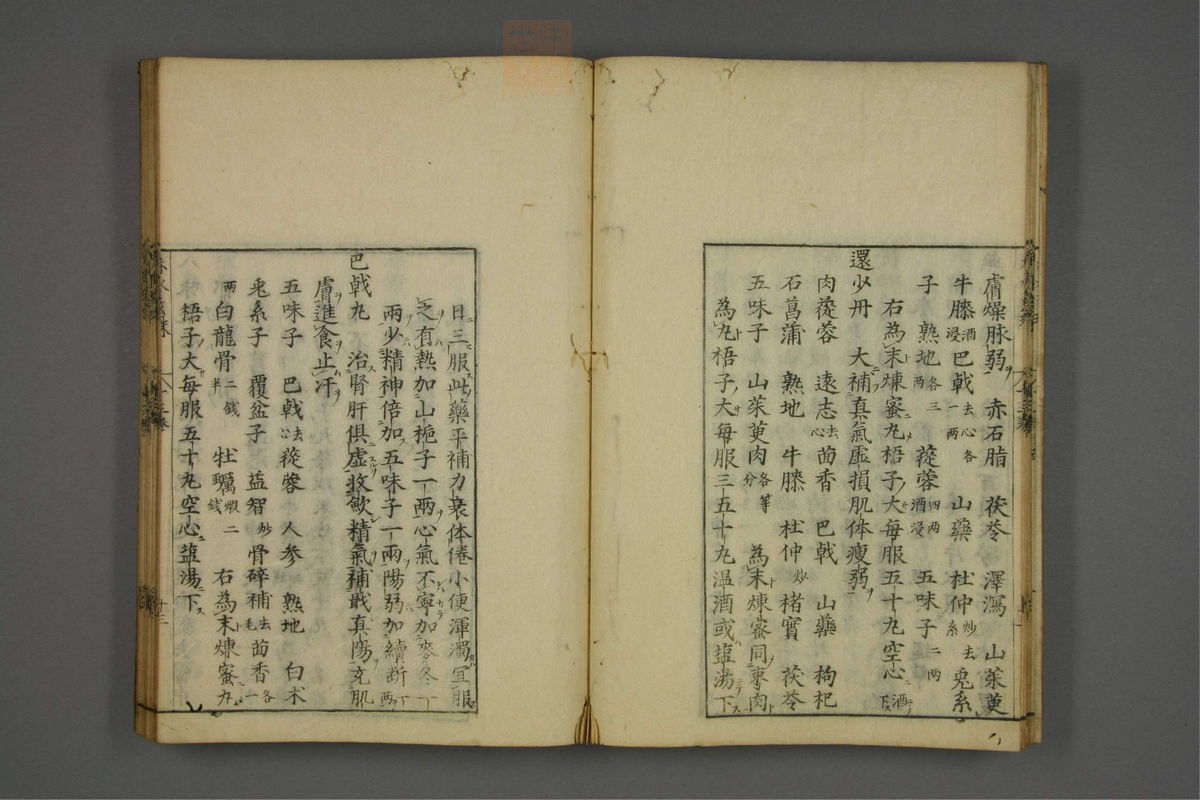 膚燥脉弱 赤石脂 茯苓 澤瀉 山茱萸
牛膝酒浸 巴戟去心各一两 山藥 杜仲炒去系 兎系
子 熟地各三两 蓯蓉四两酒浸 五味子二两
右為末煉蜜丸梧子大毎服五十丸空心酒下
還少丹 大補真氣虚損肌体瘦弱
肉蓯蓉 遠志去心 茴香 巴戟 山藥 枸杞
石菖蒲 熟地 牛膝 杜仲炒 楮實 茯苓
五味子 山茱萸肉各等分 為末煉蜜同棗肉
為丸梧子大毎服三五十丸温酒或塩湯下
日三服此藥平補力衰体倦小便渾濁宜服
之有熱加山梔子一两心氣不寧加麥冬一
两少精神倍加五味子一两陽弱加續断一两
巴戟丸 治腎肝俱虚收歛精氣補戢真陽充肌
膚進食止汗
五味子 巴戟去心 蓯蓉 人参 熟地 白朮
兎系子 覆盆子 益智炒 骨碎補去毛 茴香各一
两 白龍骨二錢半 牡蠣煆二錢 右為末煉蜜丸
梧子大毎服五十丸空心塩湯下